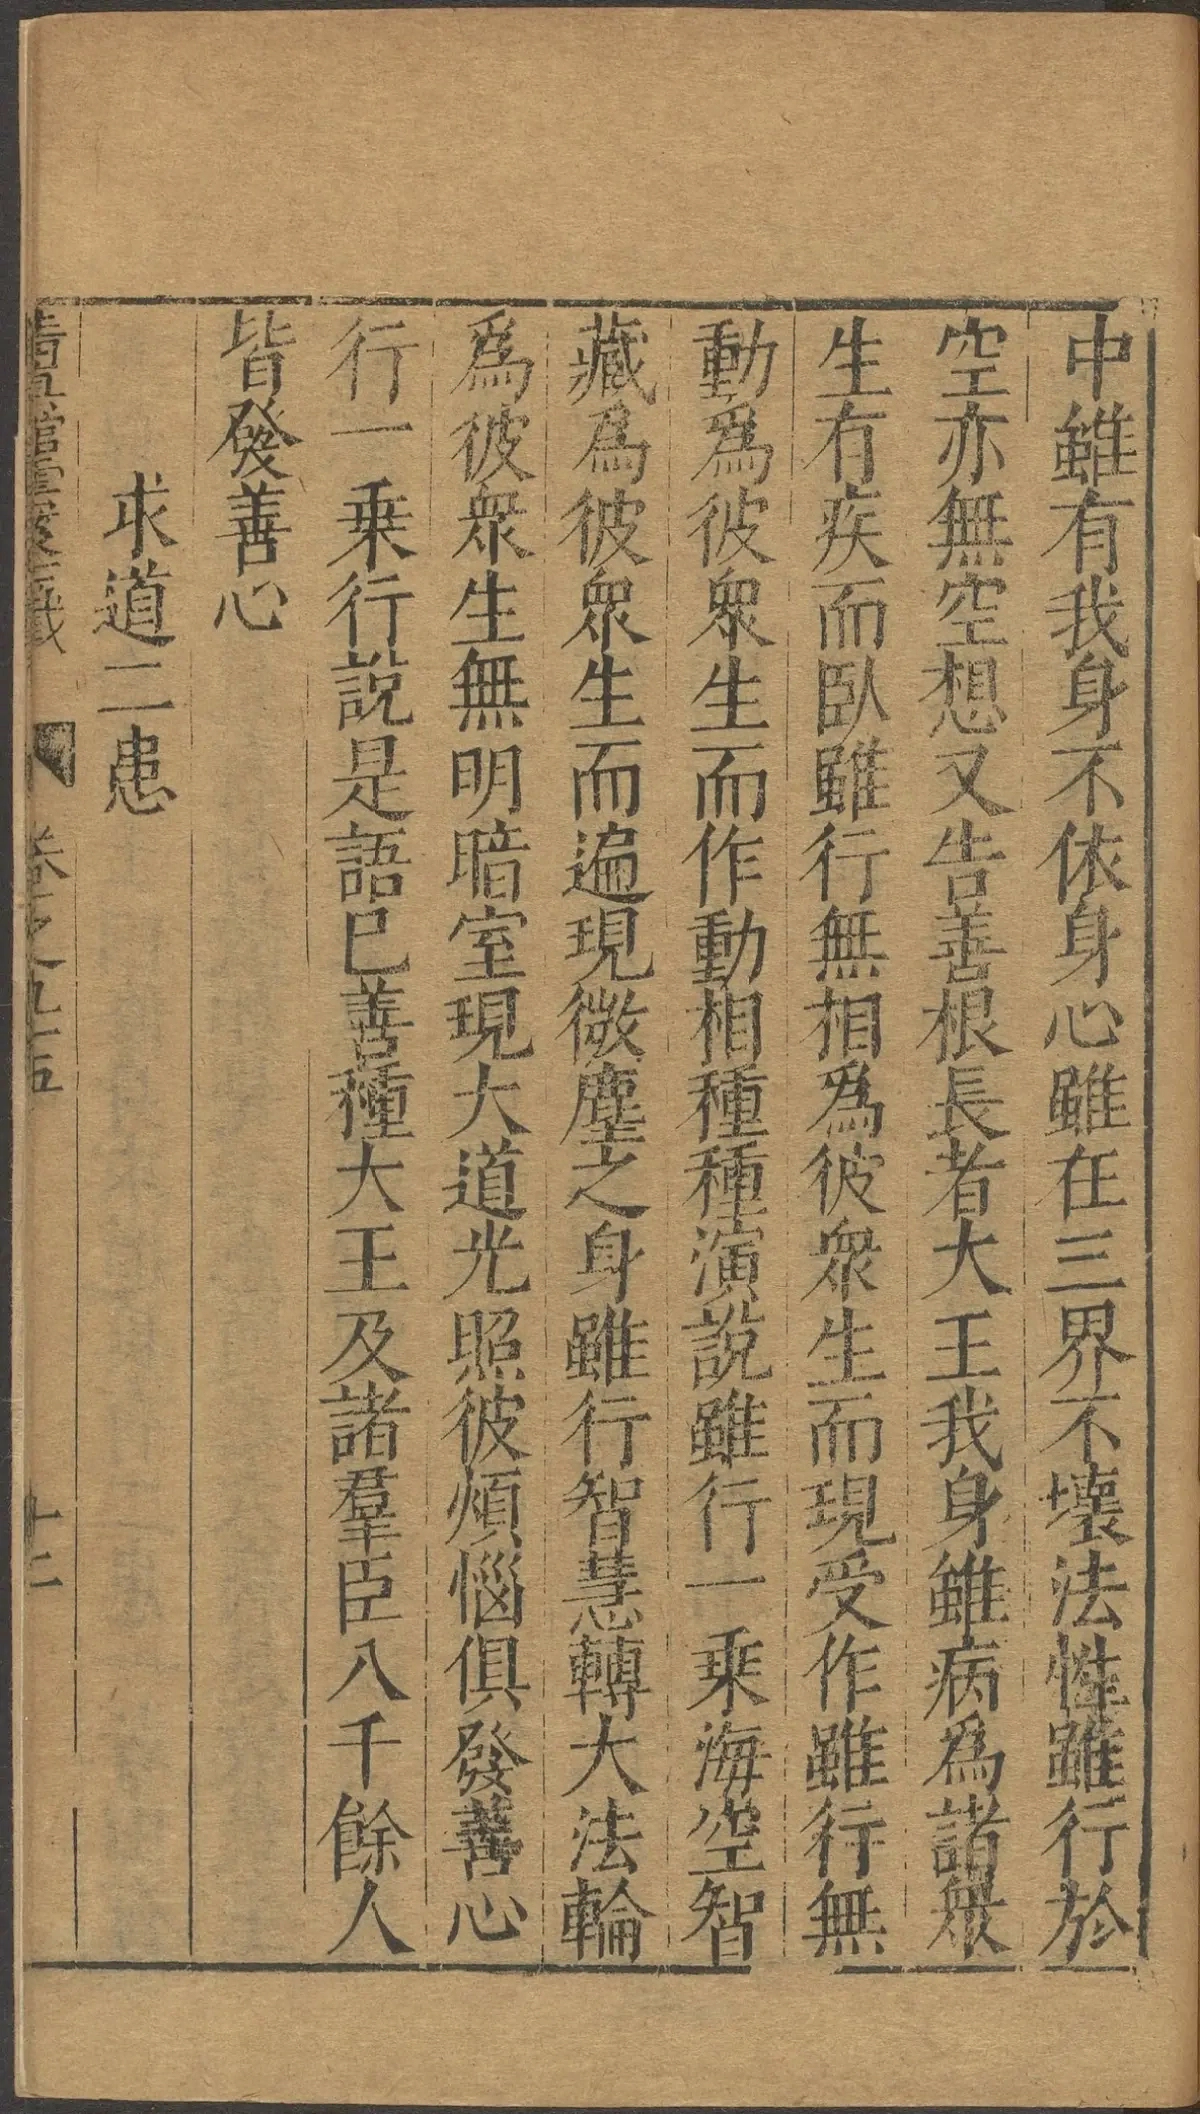 中雖有我身不依身心雖在三界不壞法性雖行於
空亦無空想又告善根長者大王我身雖病為諸眾
生有疾而臥雖行無相為彼眾生而現受作雖行無
動為彼眾生而作動相種種演說雖行一乘海空智
藏為彼眾生而遍現微塵之身雖行智慧轉大法輪
為彼眾生無明暗室現大道光照彼煩惱俱發善心
行一乘行說是語已善種大王及諸羣臣八千餘人
皆發善心
求道二患
卷之九五 十二